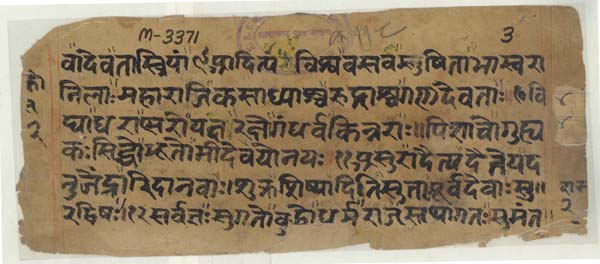 M-3371
3
वादैवतास्त्रियां ९ आदित्य विश्ववसवस्तुषिताभास्वरा
निलाः महाराजिकसाध्याश्च रुद्राश्च गणदेवताः १० वि
द्याधराप्सरोयक्ष रक्षोगंधर्वकिन्नराः ॥ पिशाचो गुह्य
कः सिद्धो भूतोमी देवयोनयः ११ असुरा दैत्य दैतेय द
नुजेंद्रारिदानवाः । शुक्रशिष्या दितिसुताः पूर्वदेवाः सु ॥
रद्विषः । १२ सर्वज्ञः सुगतो बुद्धो धर्मराजस्तथागतः सुमंत
२
राम
२